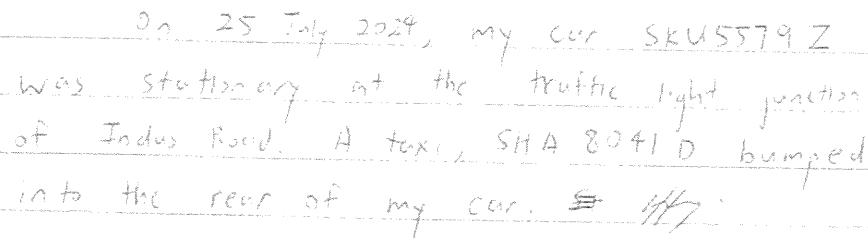 On 25 July 2024, my car SKU5579Z
was stationary at the traffic light junction
of Indus Road. A taxi, SHA 8041D bumped
into the rear of my car.